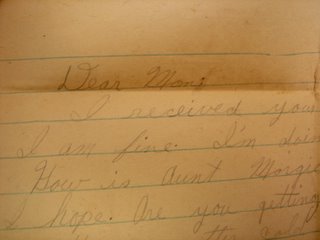 Dear Mom,
I received your
I am fine. I'm doin
How is Aunt Margie
I hope. Are you getting